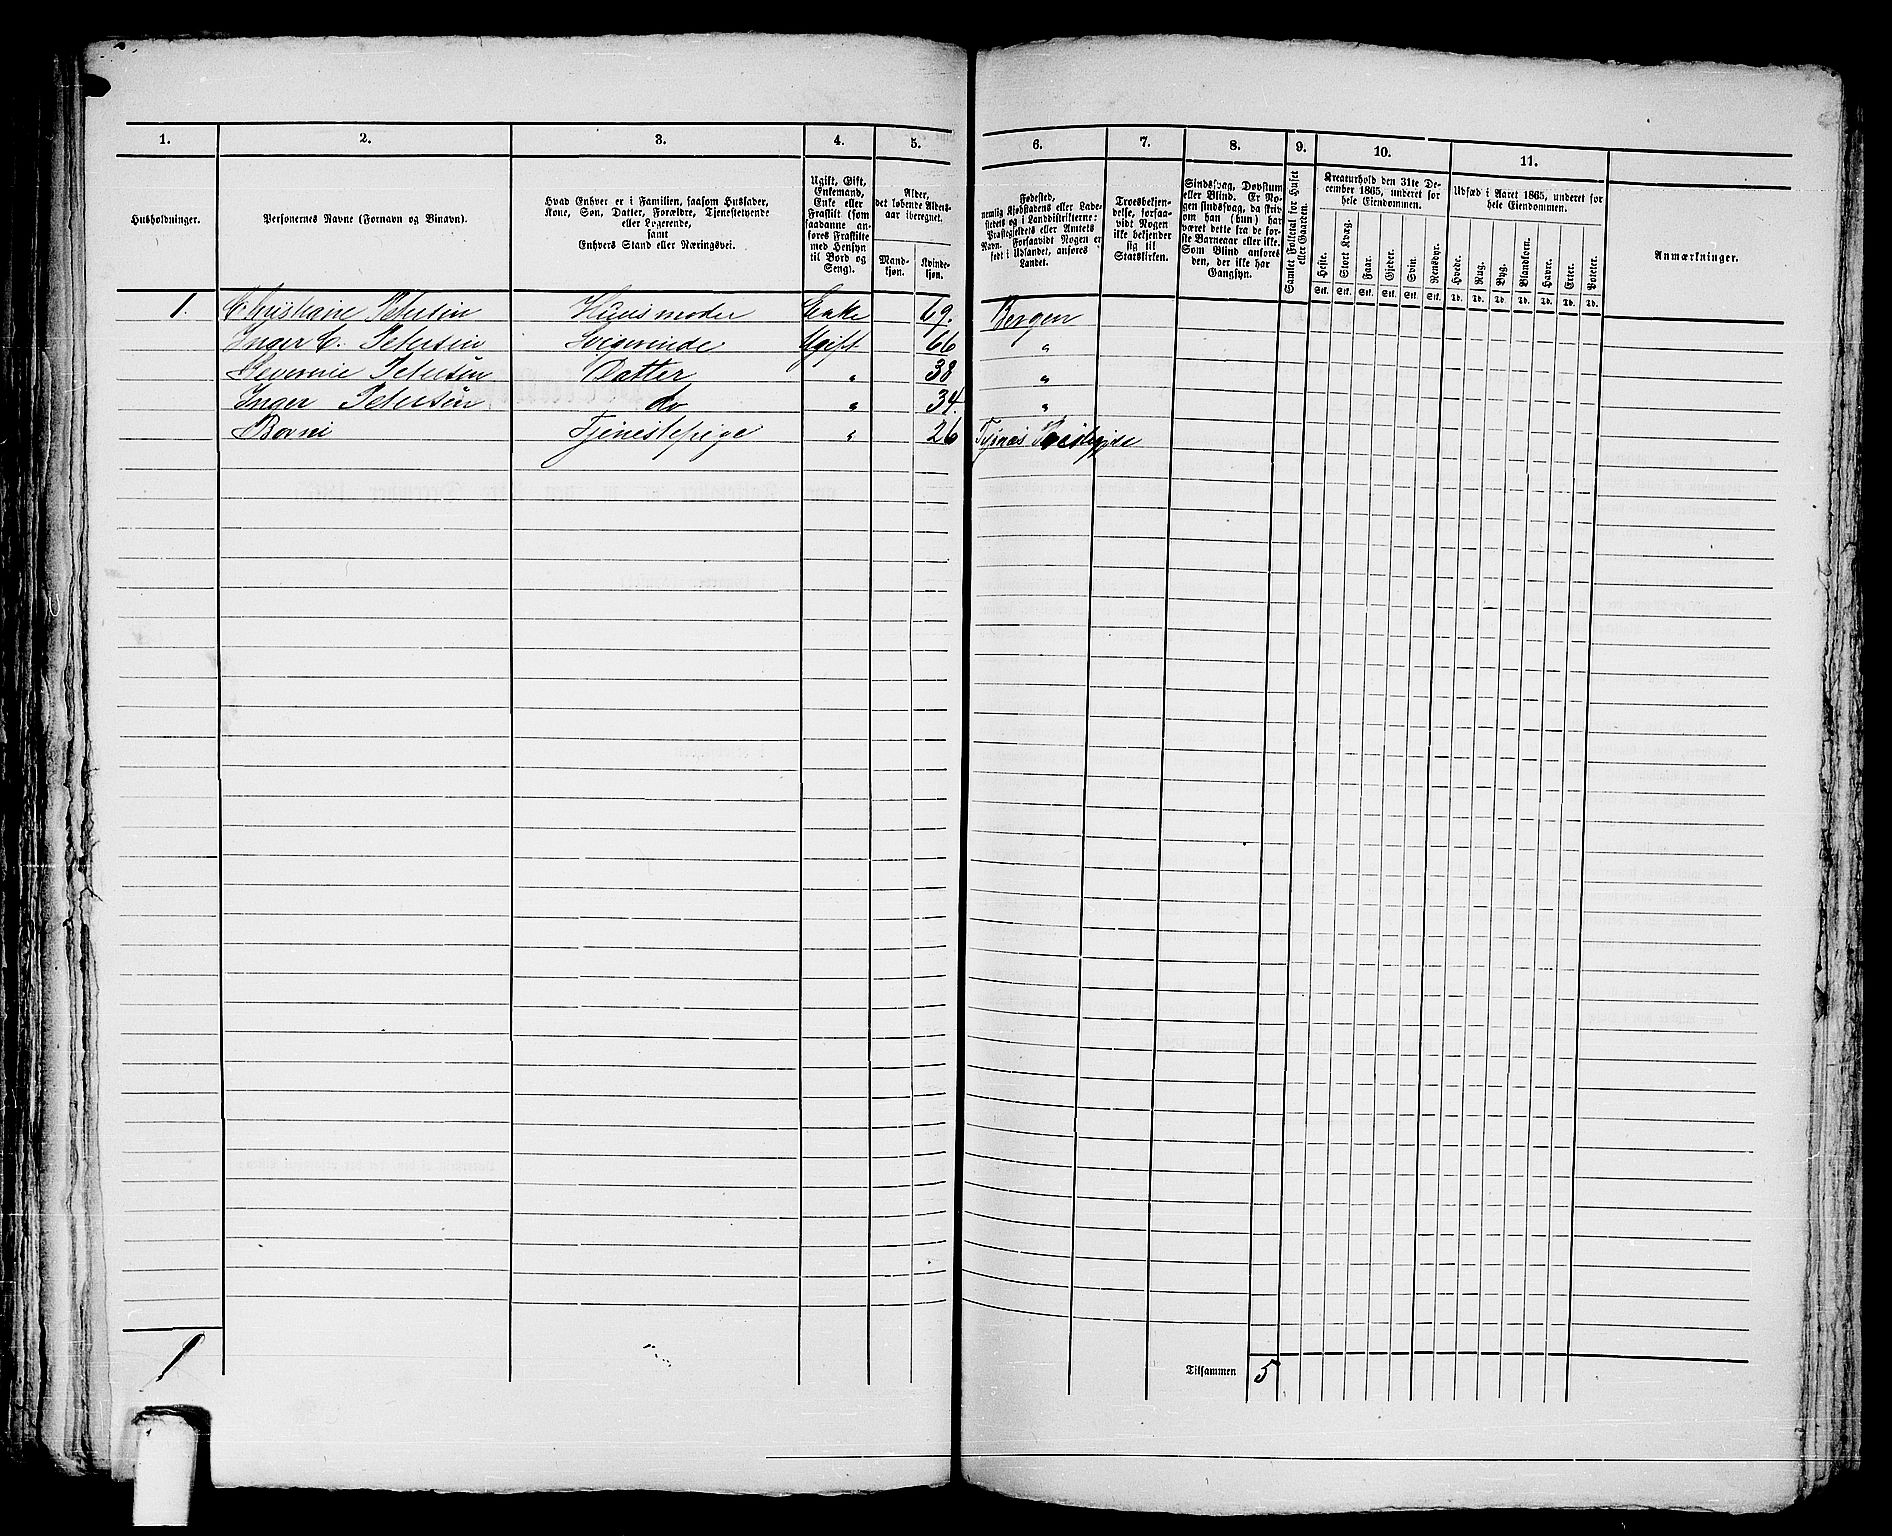 1. 2. 3. 4. 5. 6. 7. 8. 9. 10. 11.
Husholdninger.
Personernes Navne (Fornavn og Binavn).
Hvad Enhver er i Familien, saasom Husfader,
Kone, Søn, Datter, Forældre, Tjenestetyende
eller Logerende,
samt
Enhvers Stand eller Næringsvei.
Ugift, Gift,
Enkemand,
Enke eller
Fraskilt (som
saadanne an-
føres Fraskilte
med Hensyn
til Bord og
Seng).
Alder,
det løbende Alders-
aar iberegnet.
Mand-
kjøn.
Kvinde-
kjøn.
Fødested,
nemlig Kjøbstadens eller Lade-
stedets og i Landdistrikterne:
Præstegjeldets eller Amtets
Navn. Forsaavidt Nogen er
født i Udlandet, anføres
Landet.
Troesbekjen-
delse, forsaa-
vidt Nogen
ikke bekjender
sig til
Statskirken.
Sindssvag, Døvstum
eller Blind. Er No-
gen sindssvag, da skriv
om han (hun) har
været dette fra de før-
ste Barneaar eller ikke.
Som Blind anføres
den, der ikke har
Gangsyn.
Samlet Folketal for Huset
eller Gaarden.
Kreaturhold den 31te De-
cember 1865, underet for
hele Eiendommen.
Heste. Stort Kvæg. Faar. Gjeder. Svin. Rensdyr.
Stk. Stk. Stk. Stk. Stk. Stk.
Udsæd i Aaret 1865, underet for
hele Eiendommen.
Hvede. Rug. Byg. Blandkorn. Havre. Erter. Poteter.
Td. Td. Td. Td. Td. Td. Td.
Anmærkninger.
1. Christiane Petersen Huusmoder Enke 69. Bergen
Inger C. Petersen Svigerinde Ugift 66 "
Severine Petersen Datter " 38 "
Inger Petersen do " 34. "
Borni Tjenestepige " 26
1
Tilsammen 5